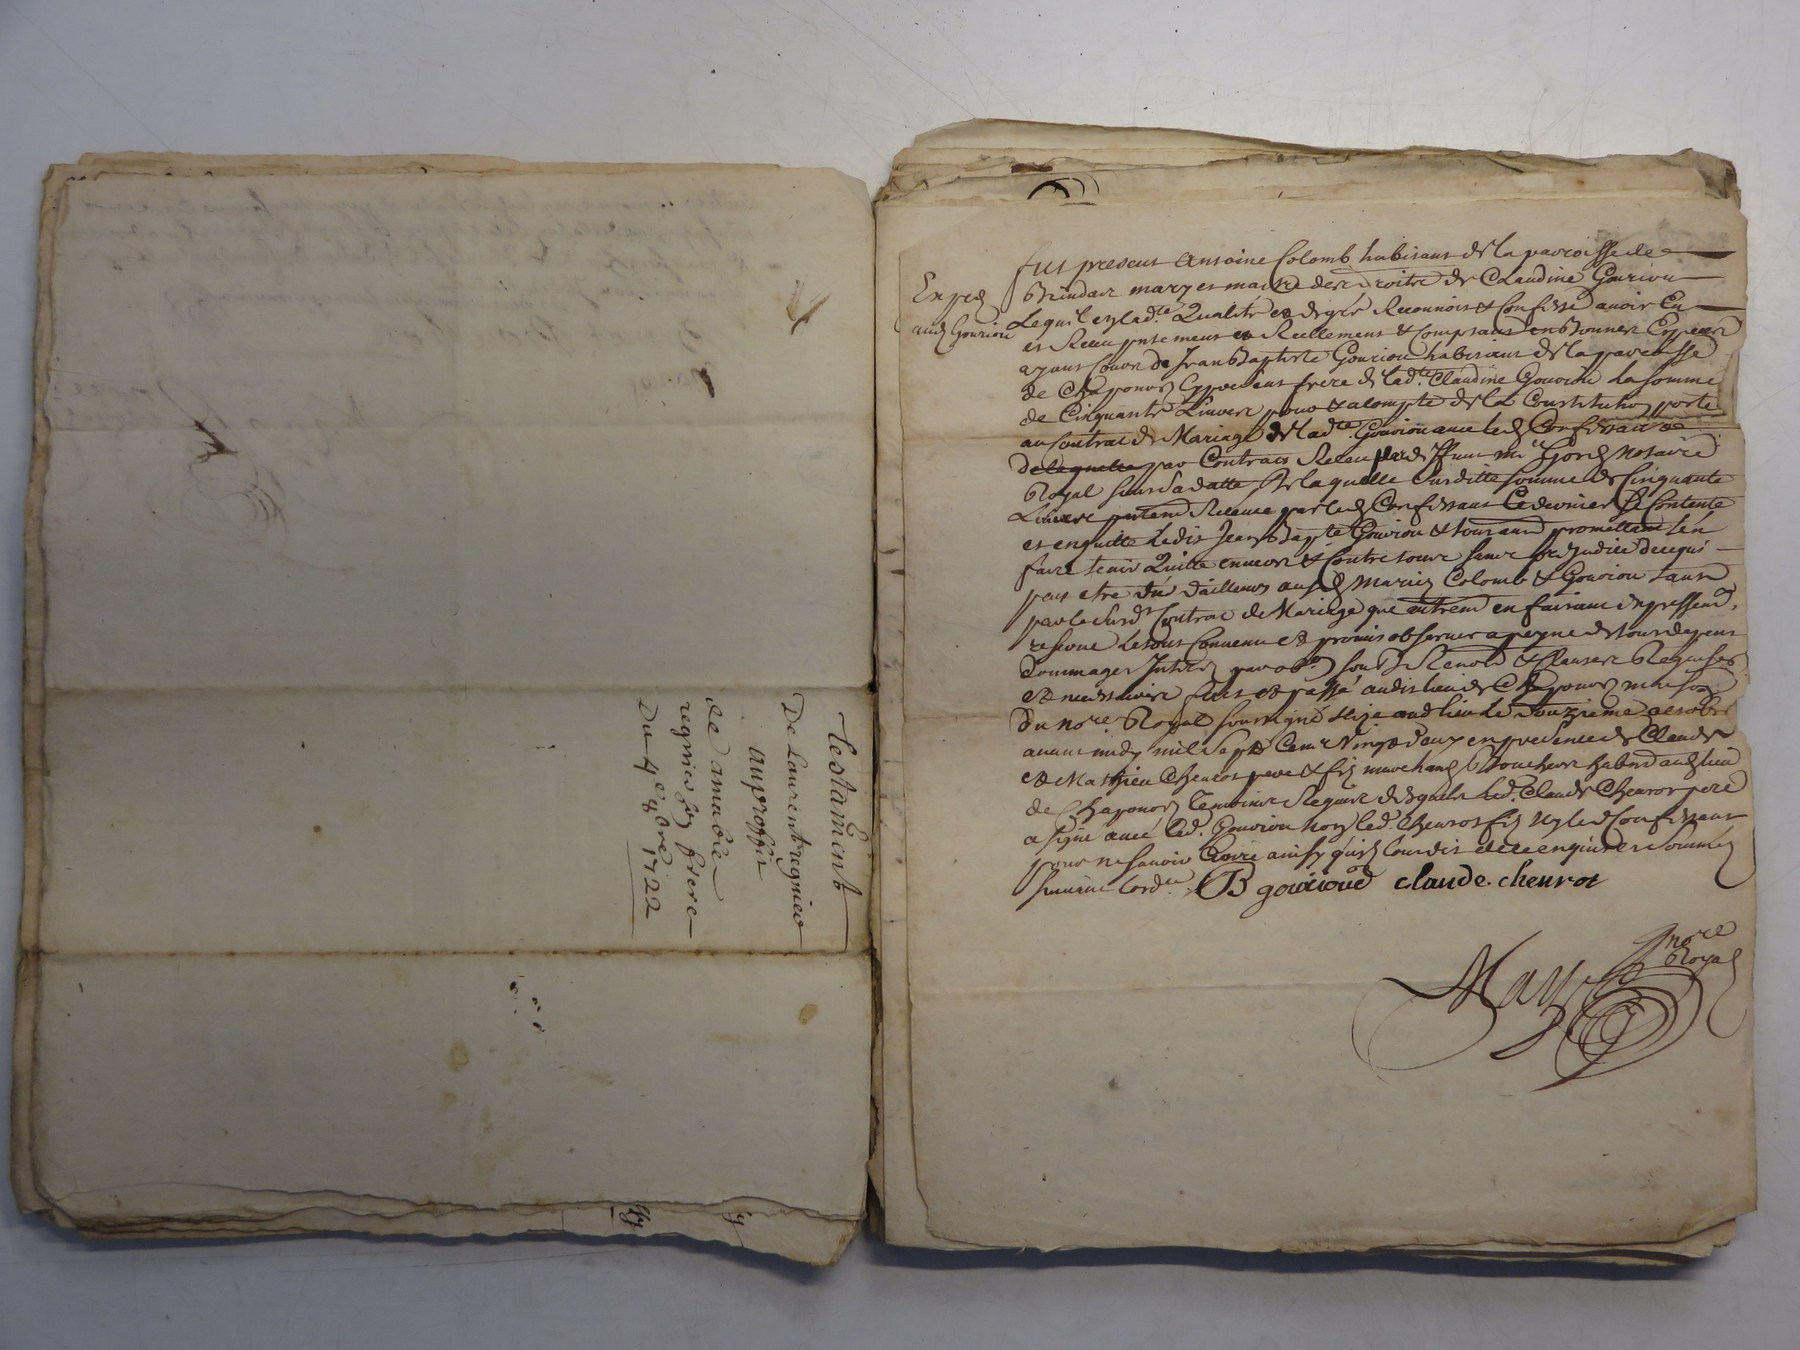 Testament
De Laurent regnieo
au proffit
de amable
regnieo son frere
Du 4e 8bre 1722
Exped
aud Gourion
fut present Antoine Colomb habitant de la paroisse de
Brindas mary et maitre des droits de Claudine Gouriou
Lequel en lad.te Qualité et de gré Reconnoit & Confesse avoir Eu
et Receu presentement et Reellement & Comptant en bonnes Especes
ayant Cours de Jean Baptiste Gouriou habitant de la paroisse
de Chaponost Cy present frere de lad.te Claudine Gouriou la somme
de Cinquante Livres pour & acompte de la Constitution porté
au Contrat de Mariage de lad.te Gouriou avec led Confessant
de laquelle par Contrat Receu par deffunt me Notaire
Royal sous sa datte de laquelle susditte somme de Cinquante
Livres Receue par led Confessant Ce dernier se Contente
et en quitte Ledit Jean Bapte Gouriou & tous autres promettant l'en
faire tenir Quitte envers & Contre tous sans prejudice de ce qui
peut etre dû d'ailleurs auxd Mariez Colomb & Gouriou tant
par le susd.t Contrat de Mariage que autrement en faisant expresse
reserve Le tout Convenu et promis observer a peyne de tous depens
dommages Interets par obon sous Renons & Clauses Requises
et necessaires fait et passé audit lieu de Chaponost maison
du nore. Royal soussigné size aud lieu Le douzieme octobre
avant midy mil Sept Cent Vingt deux en presence de Claude
et Mathieu Cheurot pere & fils marchands Bouchers habitants aud lieu
de Chaponost temoins Requis desquels led. Claude Cheurot pere
a signé avec led. Gouriou non led. Cheurot fils ny led Confessant
pour ne sçavoir Ecrire ainsy qu'ils l'ont dit de ce enquis et Sommés
suivant l'ordce
B gourioud claude. cheurot
nore
Royal